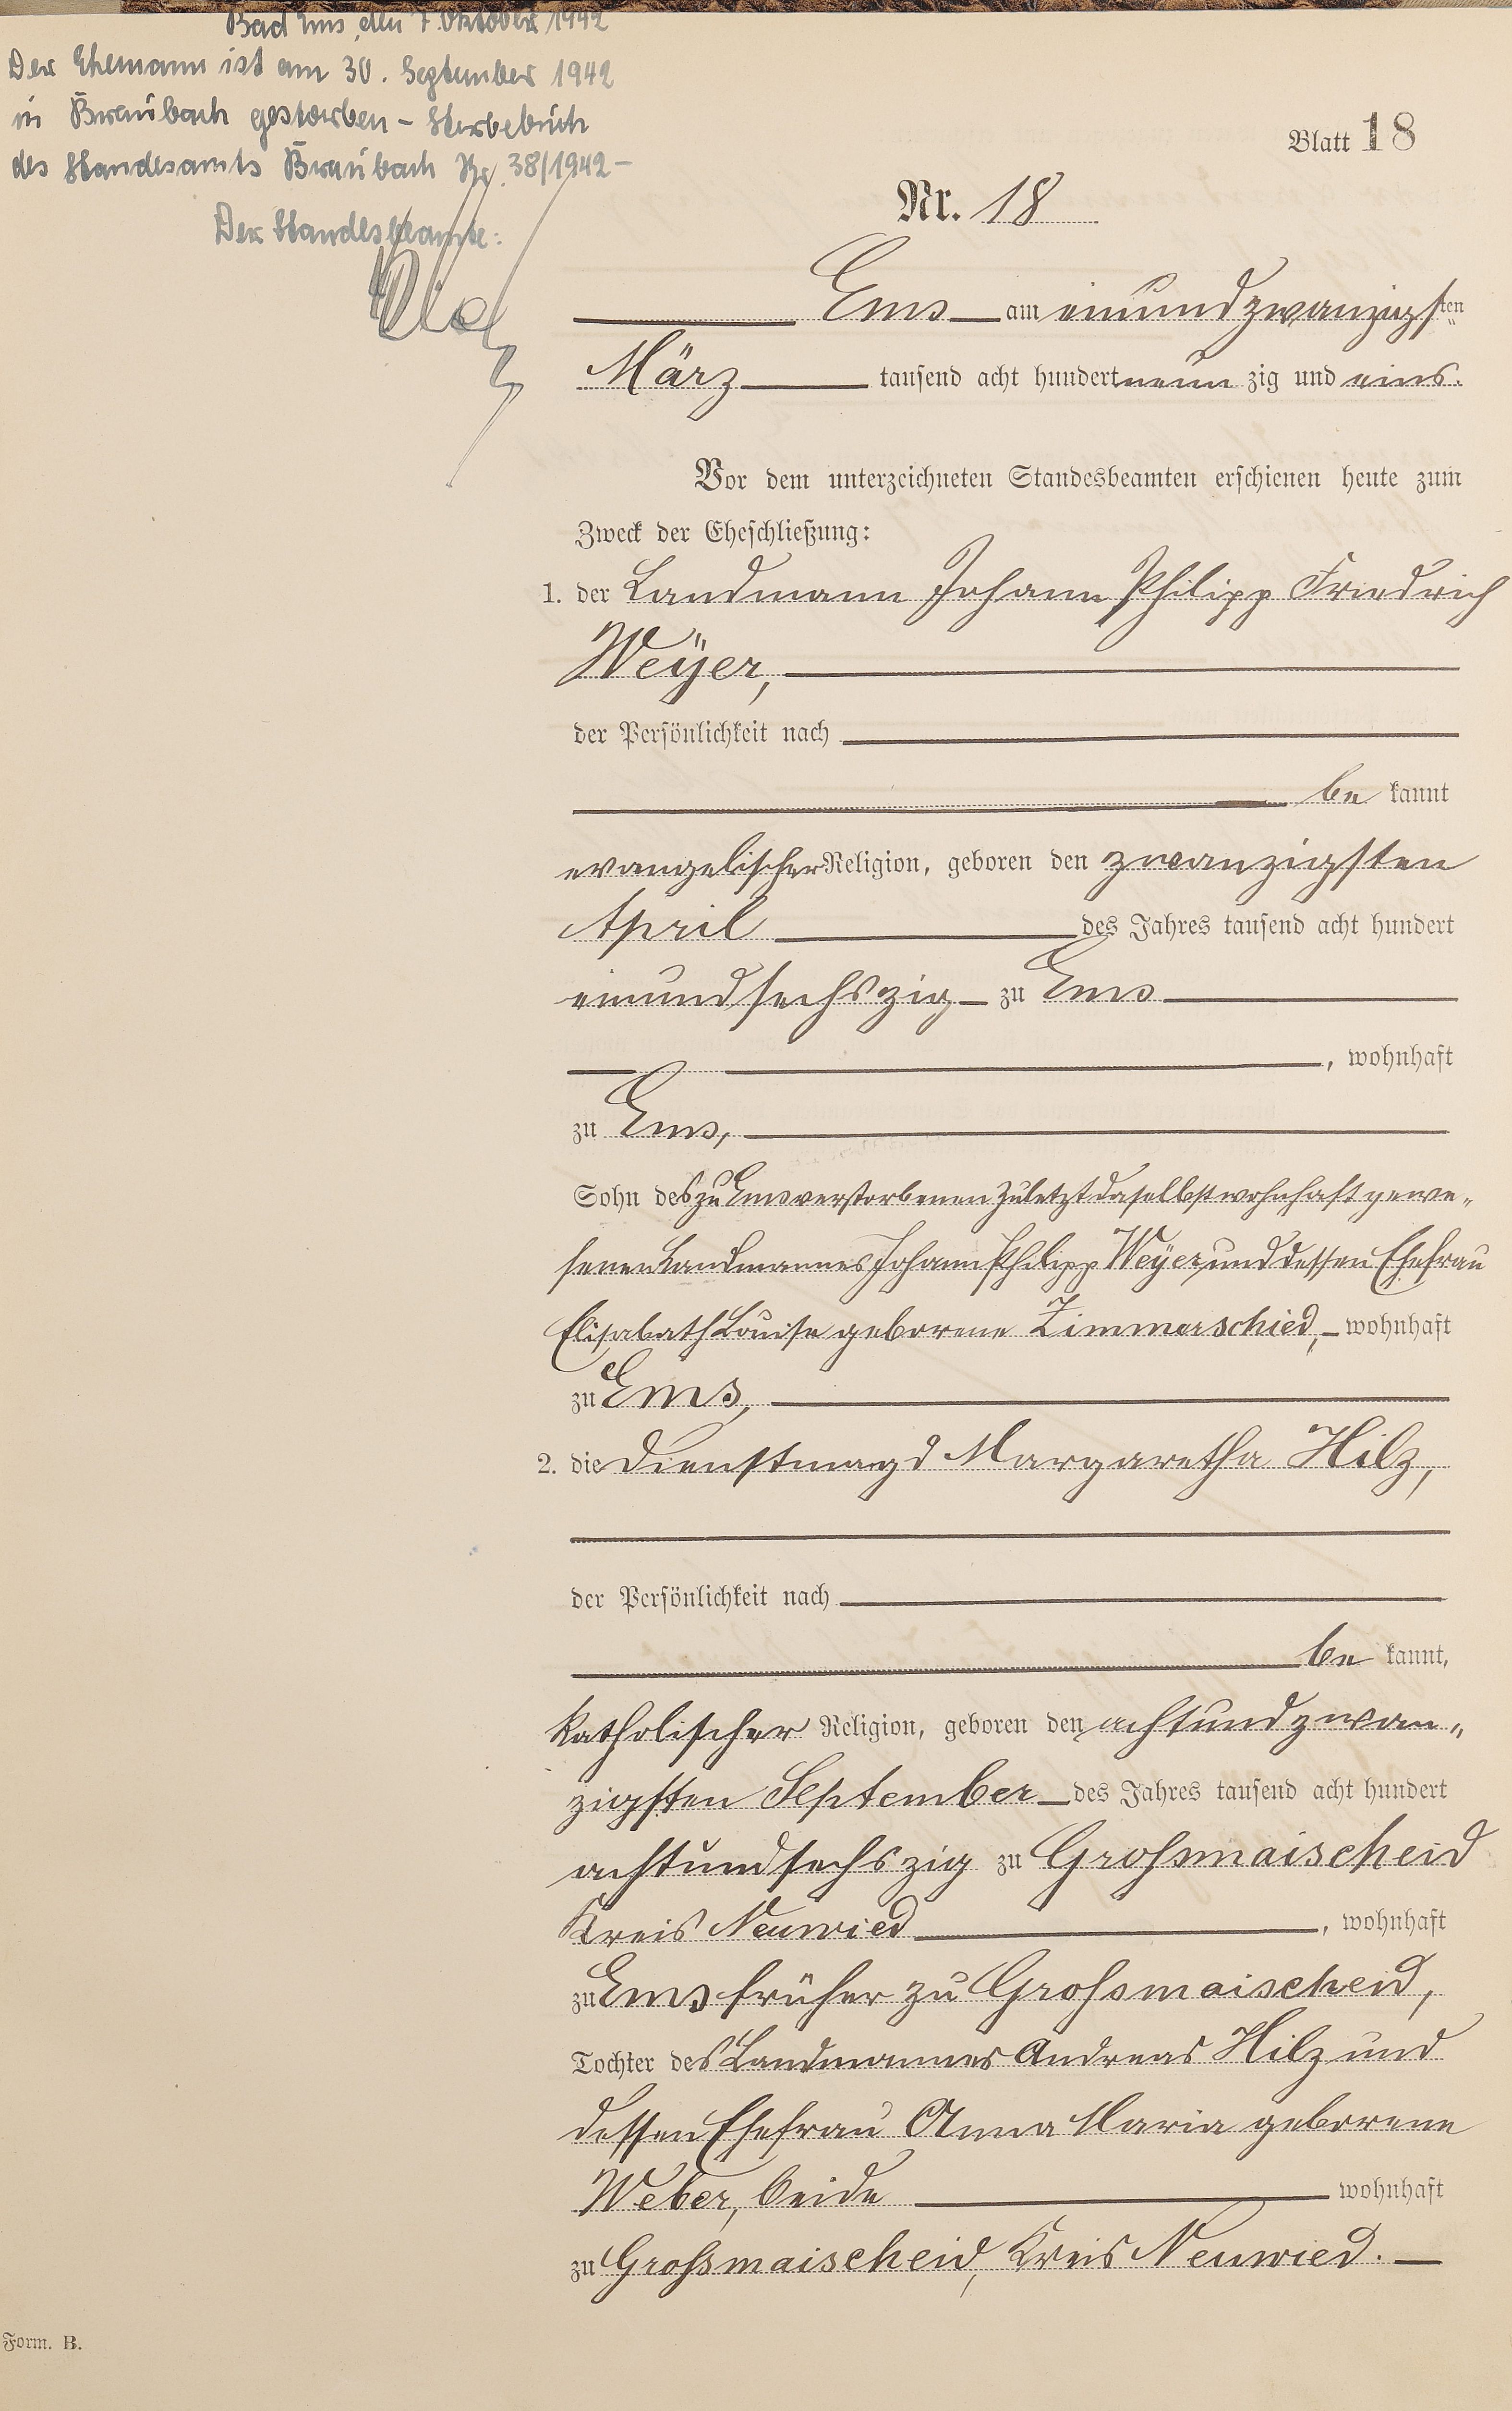 Bad Ems, den 7. Oktober 1942
Der Ehemann ist am 30. September 1942
in Braubach gestorben – Sterbebuch
des Standesamts Braubach Nr. 38/1942 –
Der Standesbeamte:
Blatt 18
Nr. 18
Ems am einundzwanzigsten
März tausend acht hundert neun zig und eins.
Vor dem unterzeichneten Standesbeamten erschienen heute zum
Zweck der Eheschließung:
1. der Landmann Johann Philipp Friedrich
Weÿer,
der Persönlichkeit nach
be kannt
evangelischer Religion, geboren den zwanzigsten
April des Jahres tausend acht hundert
einundsechszig zu Ems
, wohnhaft
zu Ems,
Sohn des zu Ems verstorbenen zuletzt daselbst wohnhaft gewe-
senen Landmannes Johann Philipp Weÿer und dessen Ehefrau
Elisabath Louise geborene Zimmerschied, wohnhaft
zu Ems,
2. die Dienstmagd Margaretha Hilz,
der Persönlichkeit nach
be kannt,
katholischer Religion, geboren den achtundzwan-
zigsten September des Jahres tausend acht hundert
achtundsechszig zu Großmaischeid
Kreis Neuwied , wohnhaft
zu Ems früher zu Großmaischeid,
Tochter des Landmannes Andreas Hilz und
dessen Ehefrau Anna Maria geborene
Weber, beide wohnhaft
zu Großmaischeid, Kreis Neuwied.
Form. B.